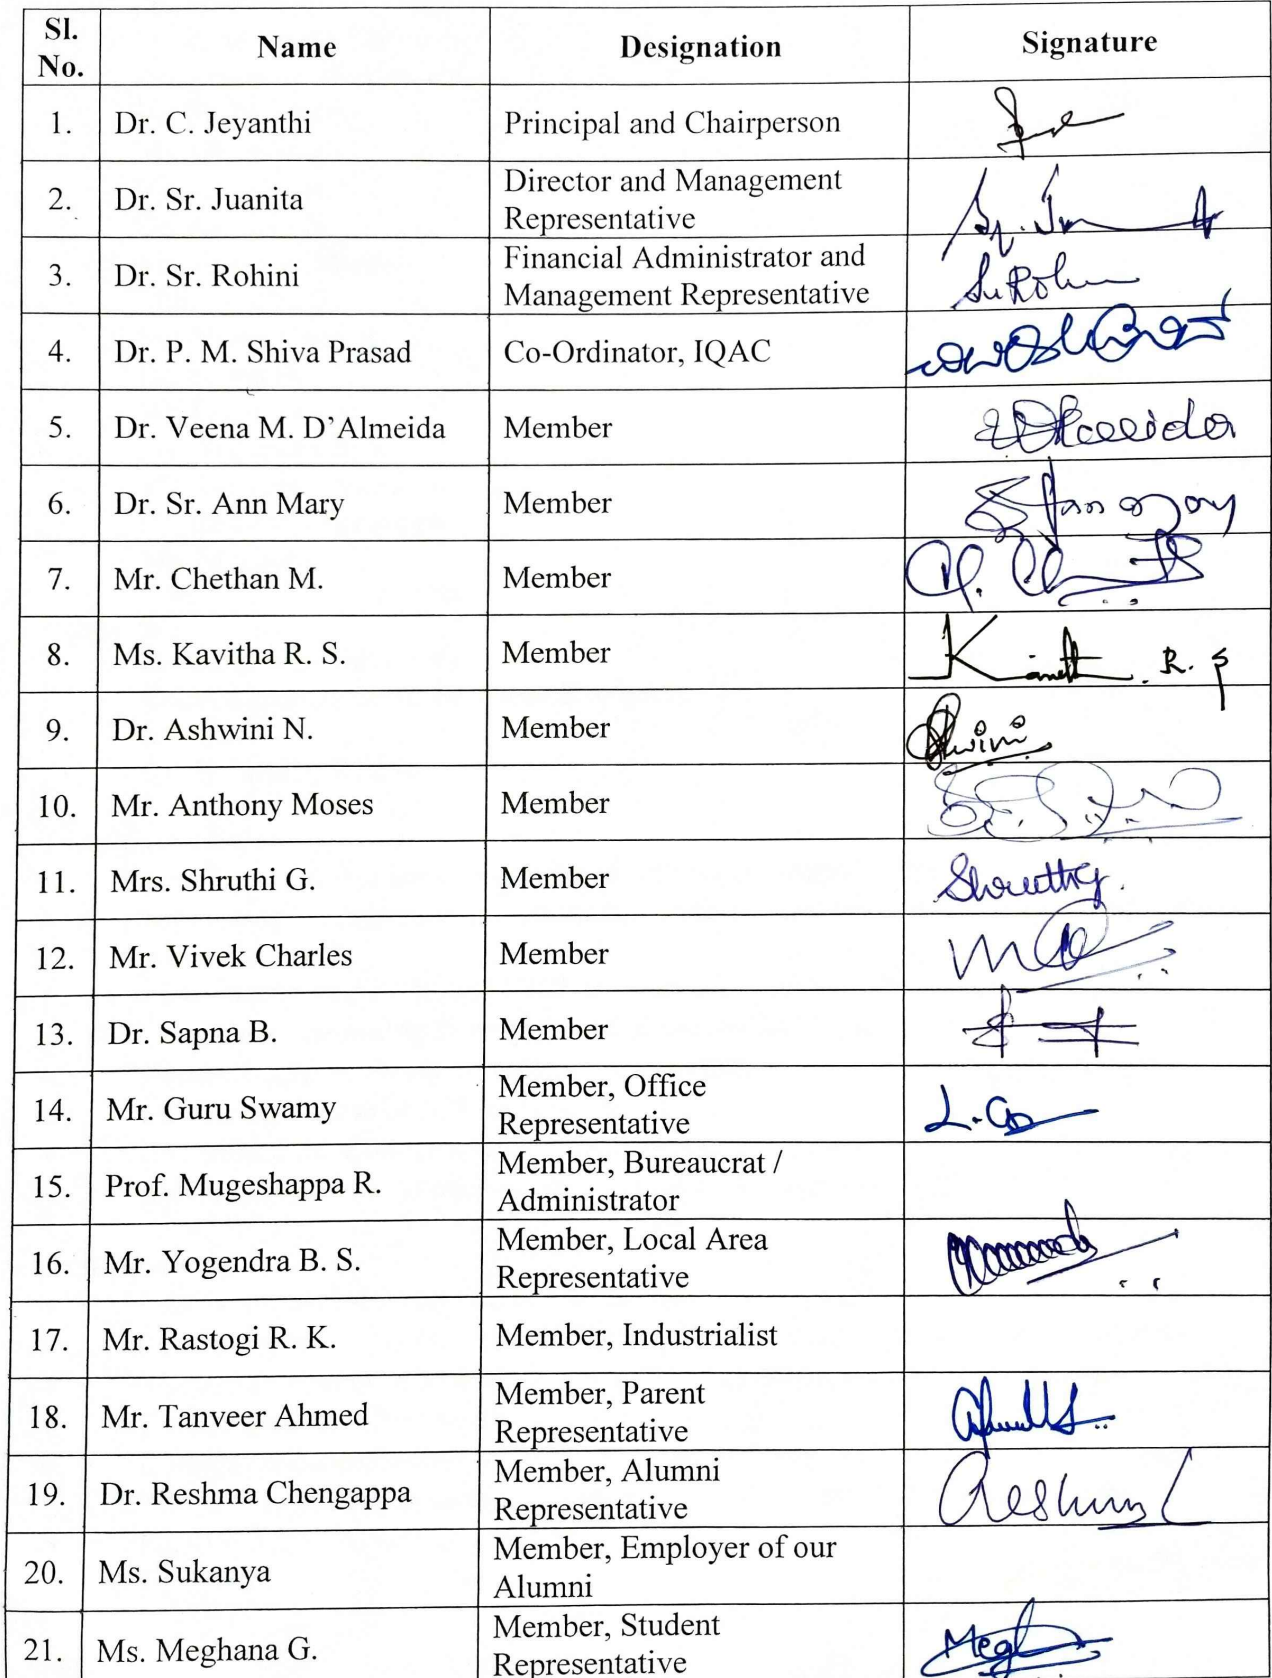 Sl. No. Name Designation Signature
1. Dr. C. Jeyanthi Principal and Chairperson
2. Dr. Sr. Juanita Director and Management
Representative
3. Dr. Sr. Rohini Financial Administrator and
Management Representative
4. Dr. P. M. Shiva Prasad Co-Ordinator, IQAC
5. Dr. Veena M. D’Almeida Member
6. Dr. Sr. Ann Mary Member
7. Mr. Chethan M. Member
8. Ms. Kavitha R. S. Member R. S
9. Dr. Ashwini N. Member
10. Mr. Anthony Moses Member
11. Mrs. Shruthi G. Member
12. Mr. Vivek Charles Member
13. Dr. Sapna B. Member
14. Mr. Guru Swamy Member, Office
Representative
15. Prof. Mugeshappa R. Member, Bureaucrat /
Administrator
16. Mr. Yogendra B. S. Member, Local Area
Representative
17. Mr. Rastogi R. K. Member, Industrialist
18. Mr. Tanveer Ahmed Member, Parent
Representative
19. Dr. Reshma Chengappa Member, Alumni
Representative
20. Ms. Sukanya Member, Employer of our
Alumni
21. Ms. Meghana G. Member, Student
Representative